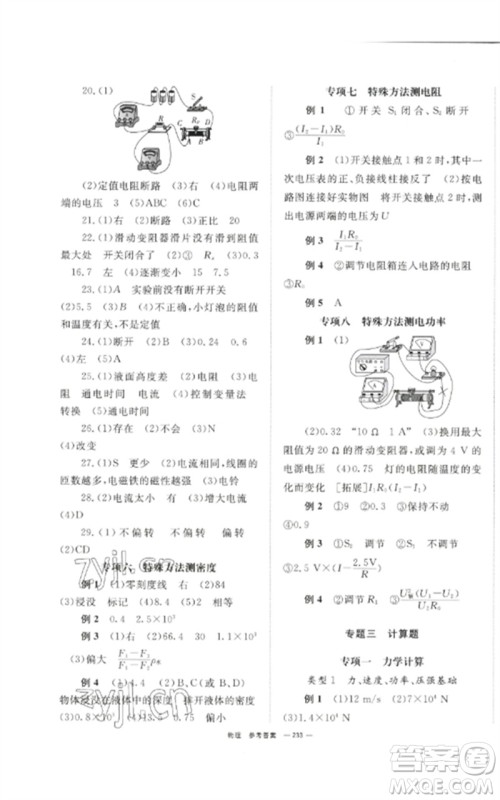 20.(1)
(2)定值电阻断路 (3)右 (4)电阻两
端的电压 3 (5)ABC (6)C
21.(1)右 (2)断路 (3)0.3
22.(1)滑动变阻器滑片没有滑到阻值
最大处 开关闭合了 (2)③ R₂ (3)0.3
16.7 左 (4)逐渐变小 15 7.5
23.(1)A 实验前没有断开开关
(2)B (3)0.2 1.2 小灯泡的阻值
和温度有关 (5)不变
24.(1)断开 (2)右 (3)0.24 0.6
(4)左 (5)A
25.(1)液面高度差 (2)电阻 (3)电
阻 通电时间 电流 (4)控制变量法
转换 (5)通电时间
26.(1)存在 (2)不会 (3)N
(4)改变
27.(1)S 更少 (2)电流大小 线圈的
匝数越多,电磁铁的磁性越强 (3)电铃
28.(1)断开 (2)不能 (3)增大电流
(4)D
29.(1)不偏转 偏转 偏转
(2)CD
专项六 特殊方法测密度
例 1 (1)零刻度线 右 (2)84
(3)浸没 标记 (4)8.4 (5)相等
例 2 0.4 2.5×10³
例 3 (1)竖直向上 (2)右 1.1×10³
(3)偏大 F₁−F₃/F₁−F₂ρ水
例 4 (1)4.4 (2)D (3)没有
物体浸没在液体中的深度 排开液体的体积
液体的密度 (4)偏小
专项七 特殊方法测电阻
例 1 ①开关 S₂ 闭合、S₁ 断开
③(I₂−I₁)R₀/I₁
例 2 (1)开关接触点 1 和 2 时,其中
一次电压表的正、负接线柱接反了 (2)按电
路图连接好实物图 将开关接触点 2,测
出电源两端的电压为 U
例 3 I₁R₀/I₂−I₁
例 4 ②调节电阻箱连入电路的电阻
例 5 A
专项八 特殊方法测电功率
例 1 (1)
(2)0.32 “10 Ω 1 A” (3)换用最
大阻值为 20 Ω 的滑动变阻器,或大于 4 V 的
电源电压 (4)0.75 灯的电阻随温度的变
化而变化
例 2 ①9 ②0.9 ③保持不动
例 3 ①S₁ 调节 ②S₂ 不调节
例 4 ②调节 R₂
专题三 计算题
专项一 力学计算
类型 1 力、速度、功率、压强基础
例 1 (1)12 m/s (2)7×10⁴ N
物理 参考答案 — 233 —